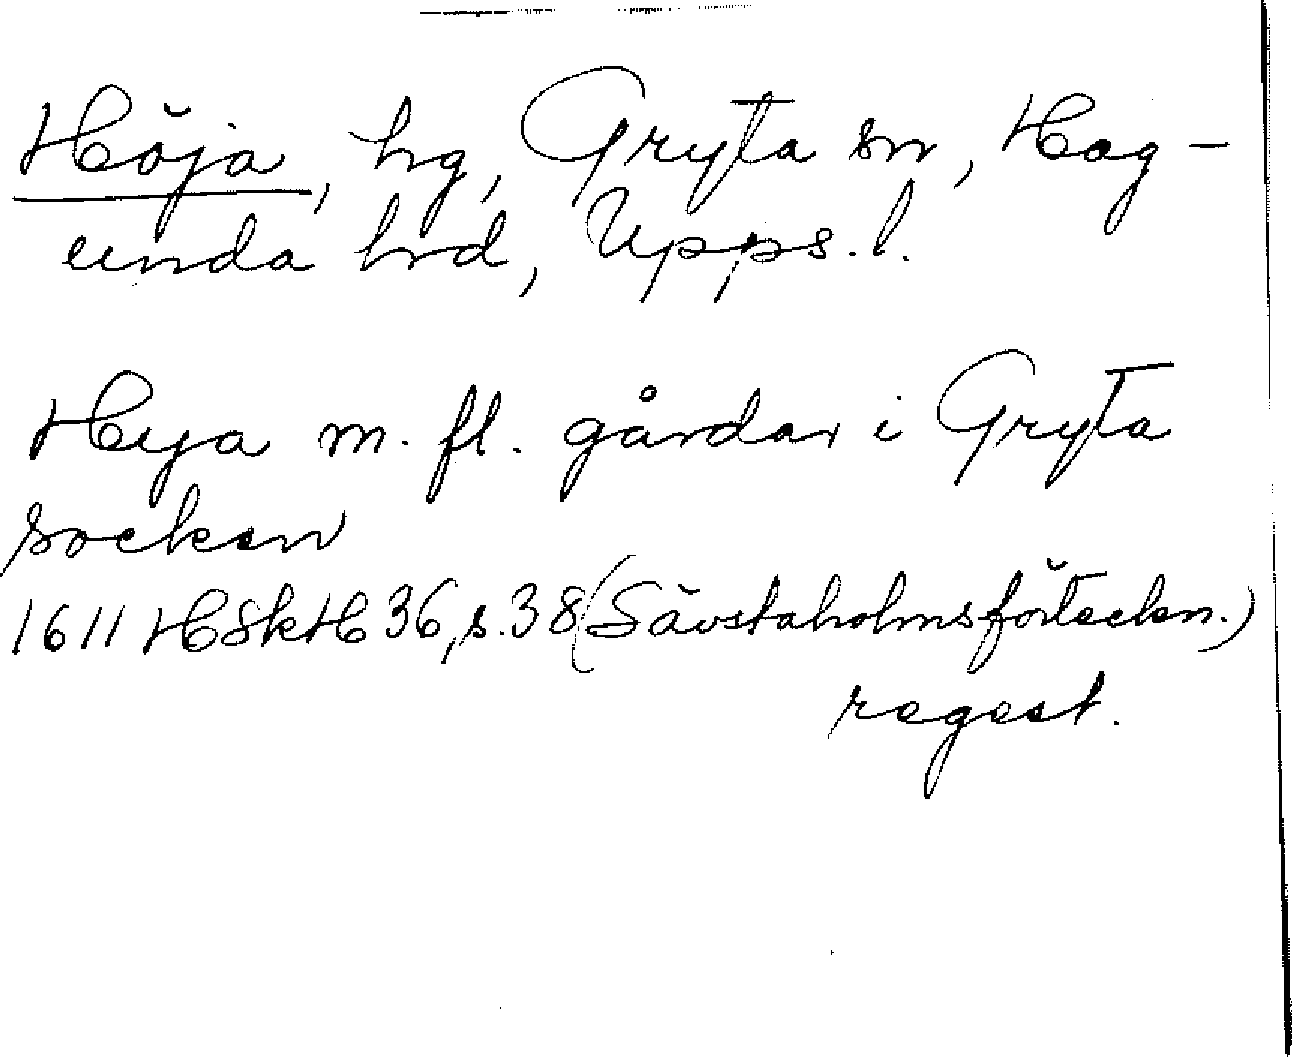 Höja, hg, Gryta sn, Hag-
unda hrd, Upps. l.
Heya m. fl. gårdar i Gryta
socken
1611 HSkH 36, s. 38 (Sävstaholmsförteckn.)
regest.